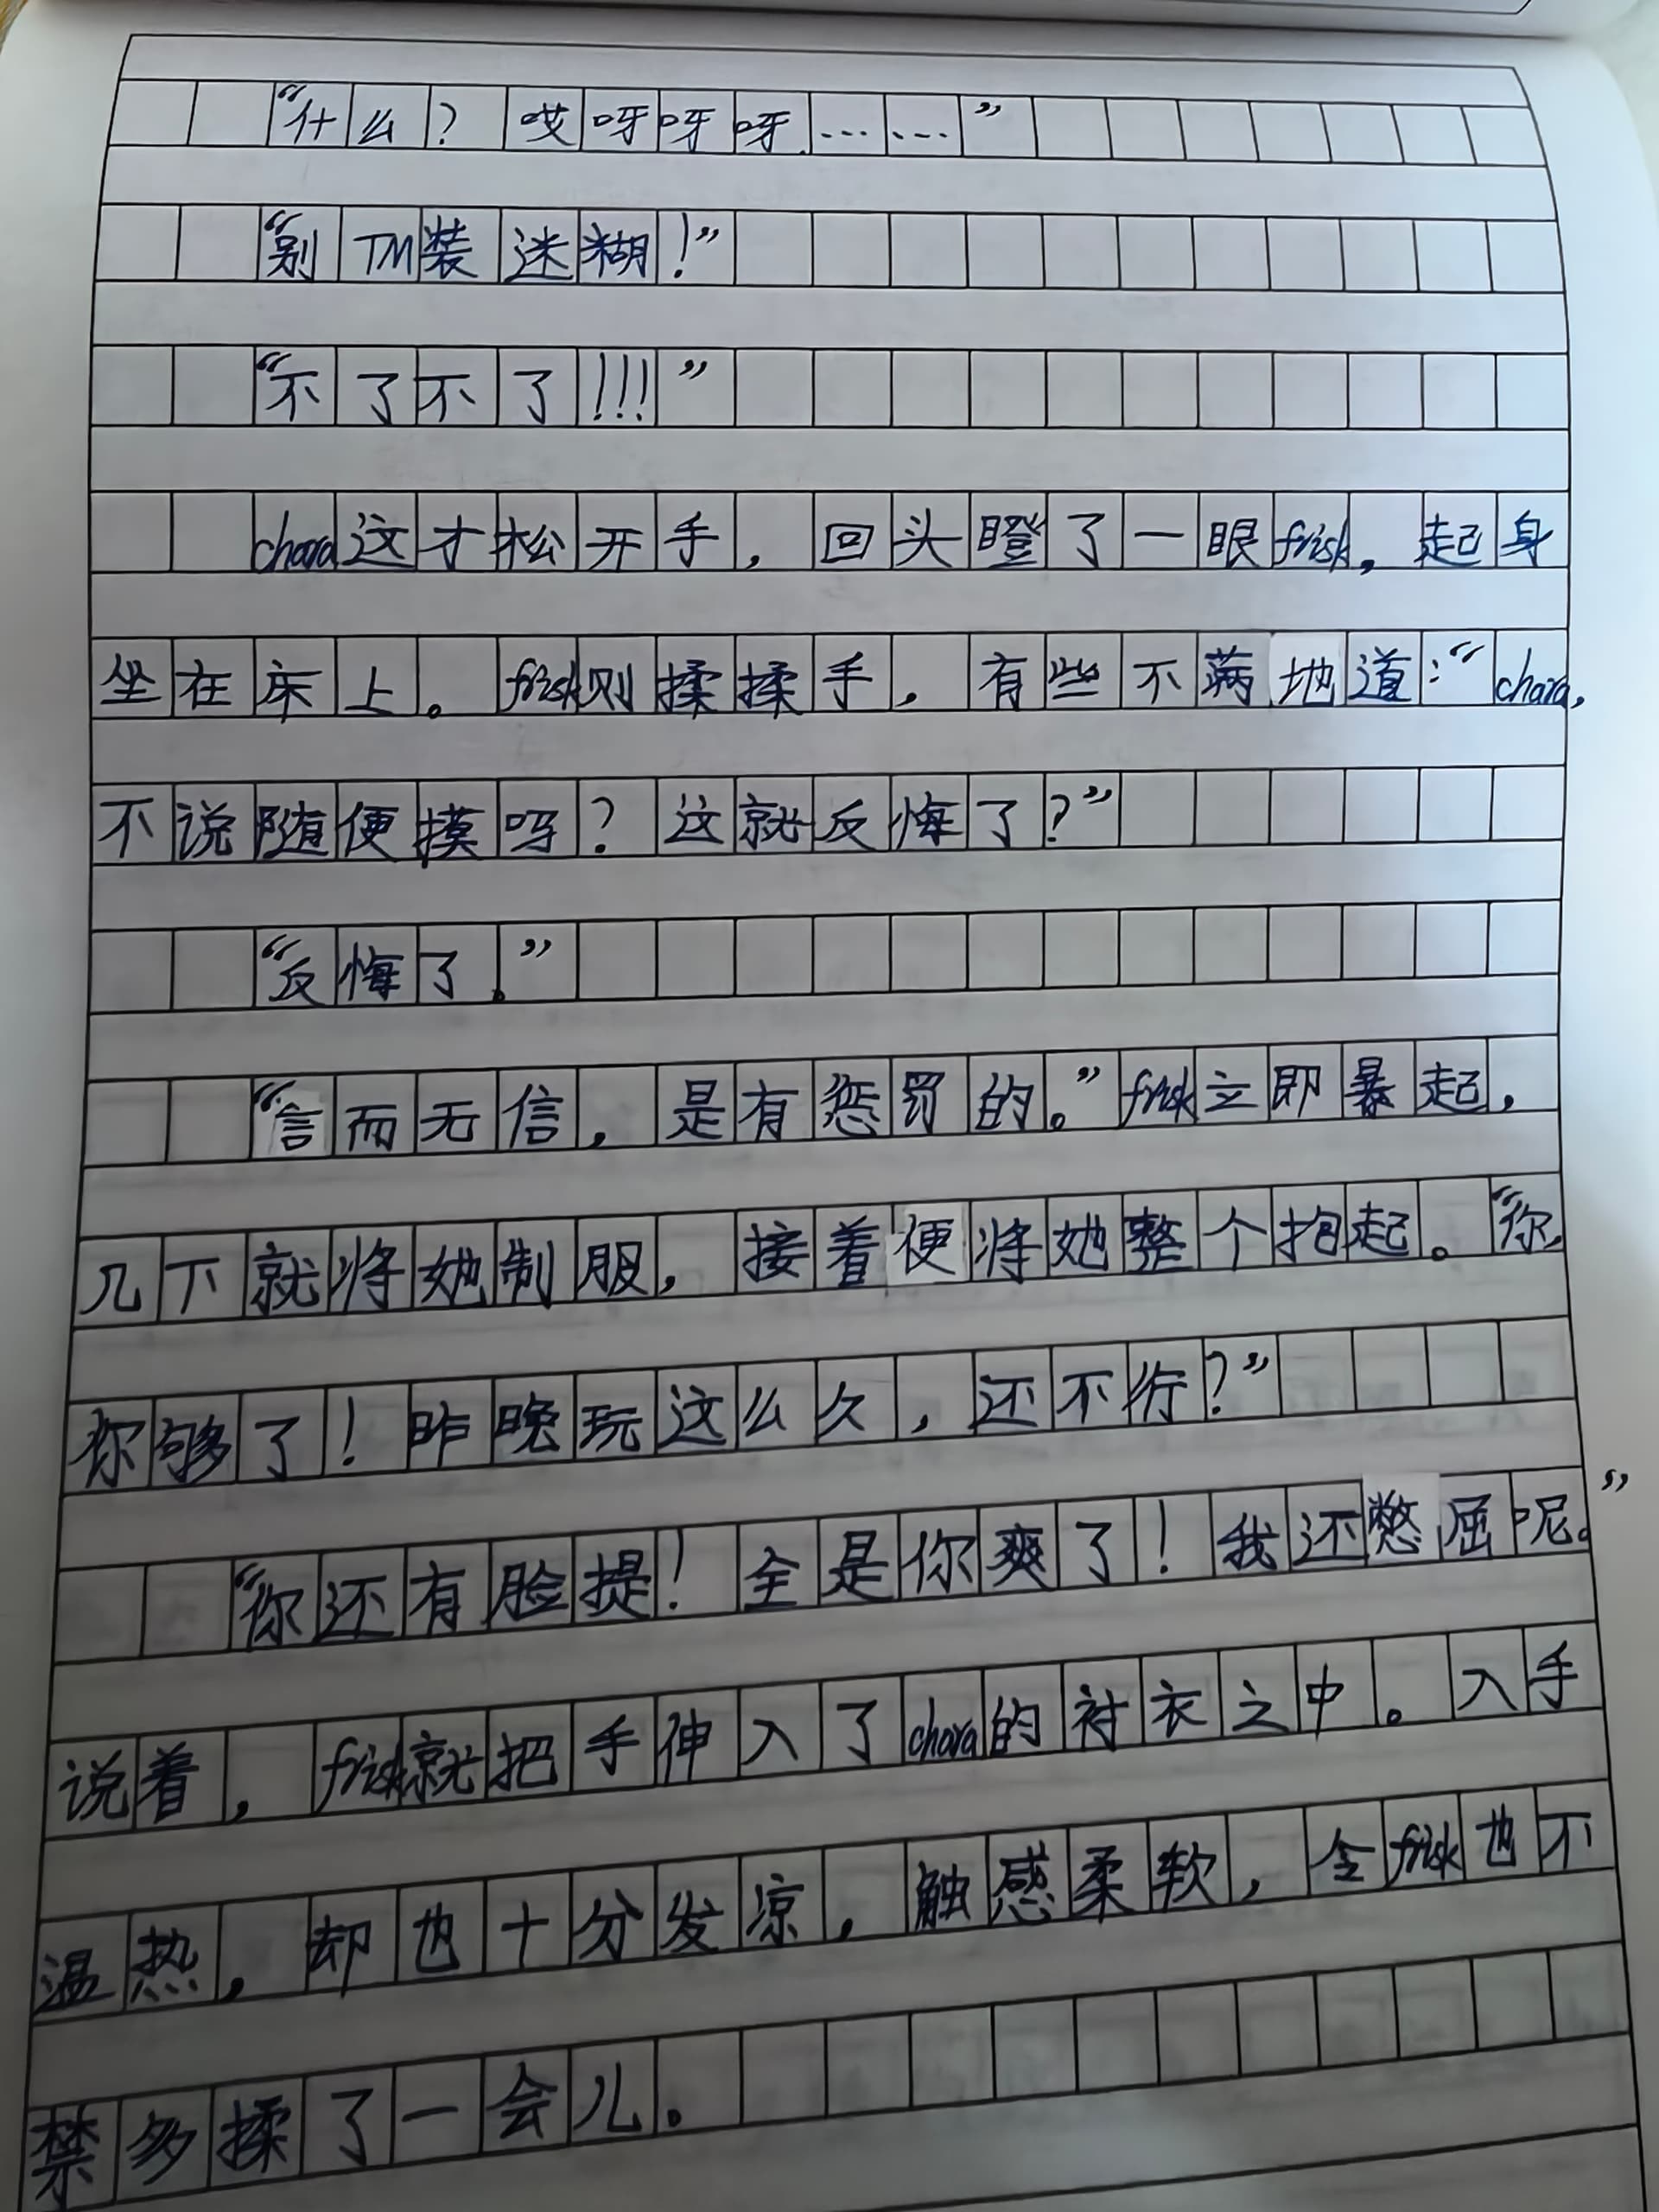 “什么？哎呀呀呀……”
“别TM装迷糊！”
“不了不了!!!”
chara这才松开手，回头瞪了一眼frisk，起身
坐在床上。frisk则揉揉手，有些不满地道：“chara，
不说随便摸吗？这就反悔了？”
“反悔了。”
“言而无信，是有惩罚的。”frisk立即暴起，
几下就将她制服，接着便将她整个抱起。“你，
你够了！昨晚玩这么久，还不行？”
“你还有脸提！全是你爽了！我还憋屈呢。”
说着，frisk就把手伸入了chara的衬衣之中。入手
温热，却也十分发凉，触感柔软，令frisk也不
禁多揉了一会儿。